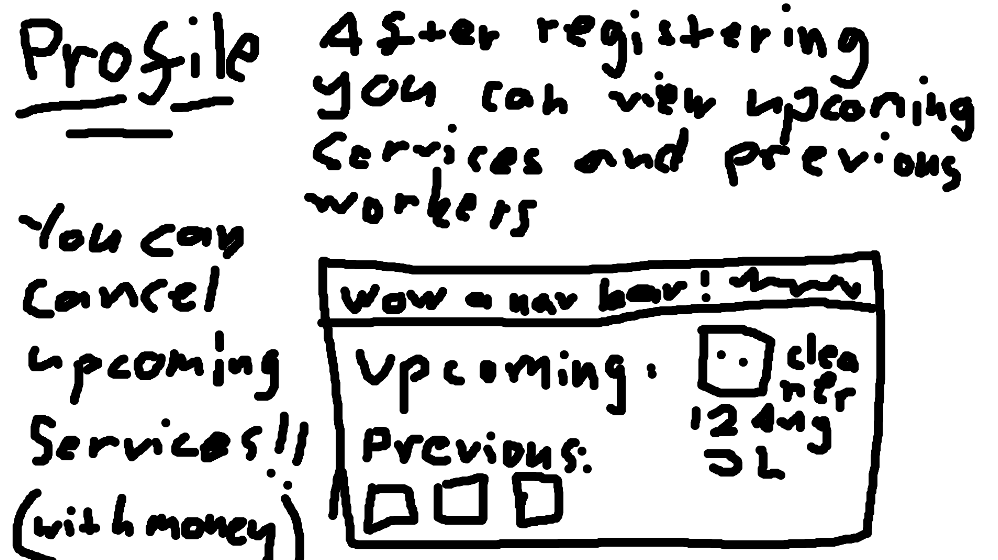 Profile
After registering
you can view upcoming
services and previous
workers
You can
cancel
upcoming
services!!
(with money)
wow a nav bar!
Upcoming:
clea
ner
12 Aug
Previous: